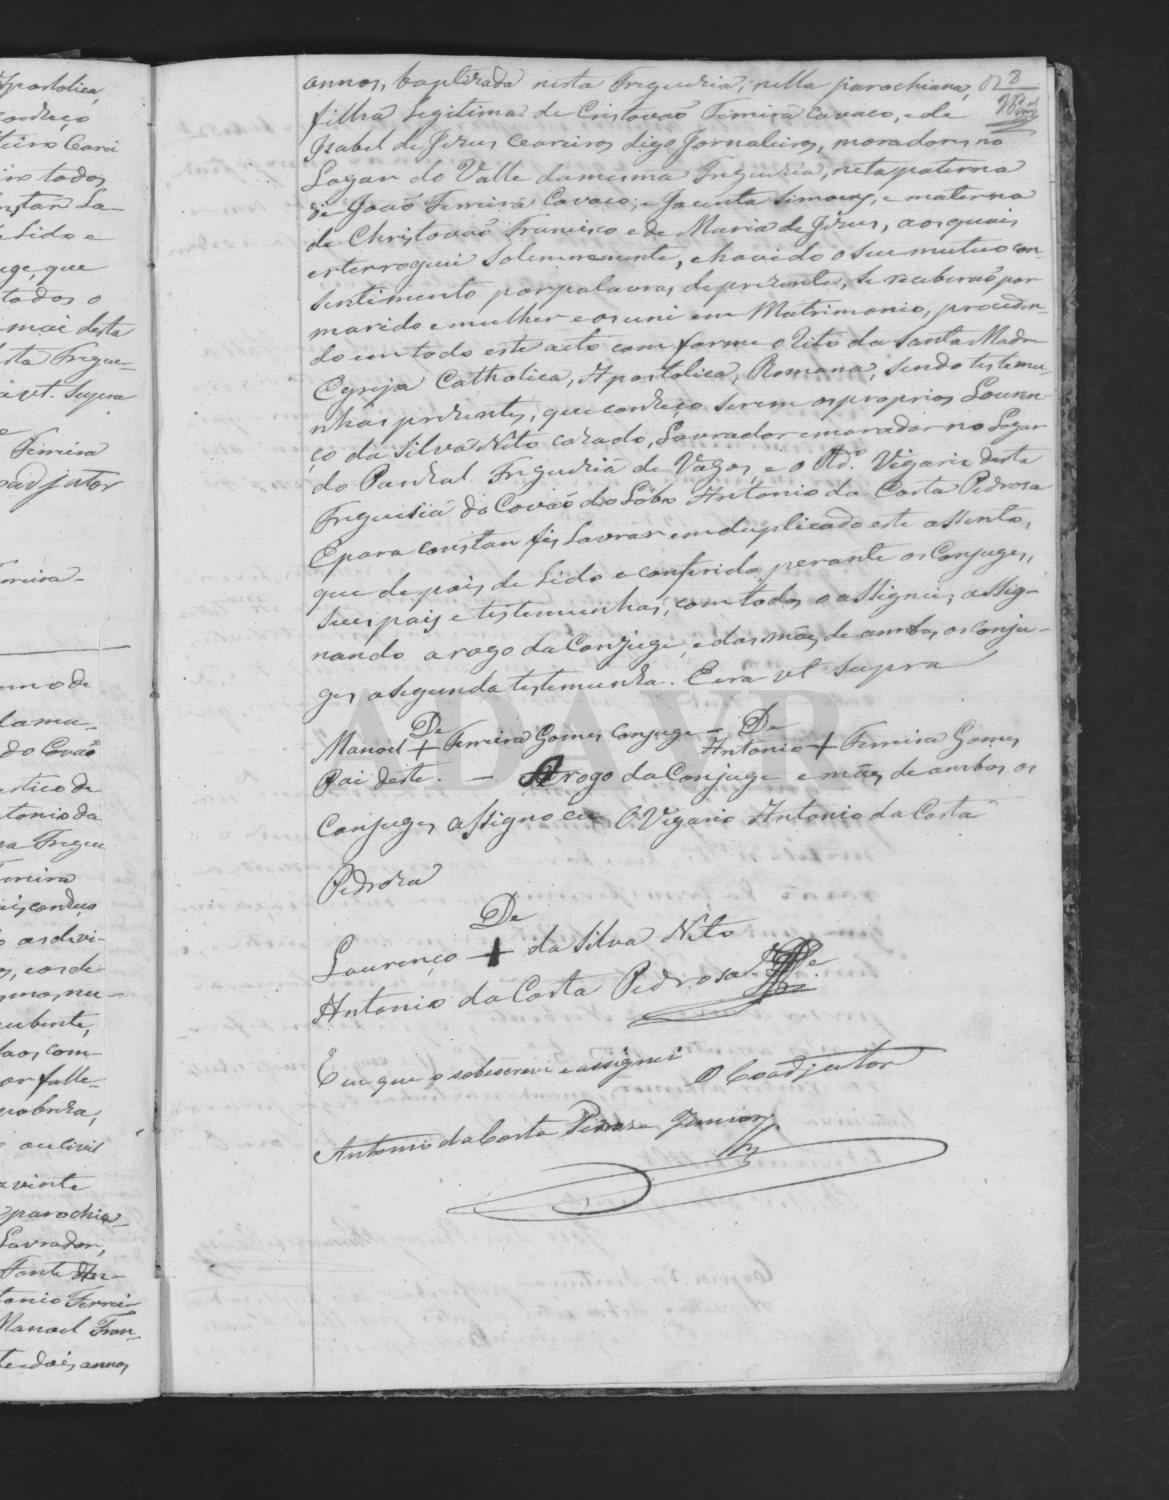 Apostolica,
conheço
teiro Ceari
todos
constar La-
Lido e
uge, que
todos o
mai desta
desta Fregue-
ut. Supra
Ferreira
Coadjutor
Ferreira
anno de
do Covaõ
Antonio da
Fregue
conheço
as devi-
com
por falle-
pobreza,
ou civil
vinte
parochia-
Lavrador,
Fonte
Antonio Ferrei-
Manoel Fran-
te e dois annos
8
annos, baptizada nesta Freguezia, nella parochiana,
filha Legitima de Cristovaõ Ferreira Cavaco, e de
Izabel de Jezus Ceareiros digo Jornaleiros, moradores no
Lugar do Valle da mesma Freguezia, neta paterna
de Joaõ Ferreira Cavaco, e Jacinta Simoens, e materna
de Christovaõ Francisco e de Maria de Jezus, aos quais
enterroguei Solemnemente, e havido o seu mutuo con-
sentimento por palavras de prezente, se receberaõ por
marido e mulher e os uni em Matrimonio, proceden-
do em todo este acto comforme o Rito da Santa Madre
Egreja Catholica, Apostolica, Romana, sendo testemu-
nhas prezentes, que conheço serem os proprios Louren-
ço da Silva Neto cazado, Lavrador e morador no Lugar
do Pardeal Freguezia de Vagos, e o Rdº. Vigario desta
Freguesia do Covaõ do Lobo Antonio da Costa Pedroza
E para constar fis Lavrar em duplicado este assento,
que depois de Lido e conferido perante os Conjuges,
seus pais e testemunhas, com todos o assignei, assig-
nando a rogo da Conjuge, e das mães de ambos os conju-
ges a segunda testemunha. Era ut Supra
De De
Manoel + Ferreira Gomes Conjuge - Antonio + Ferreira Gomes
Pai deste. — A rogo da Conjuge e mães de ambos os
Conjuges assigno eu O Vigario Antonio da Costa
Pedroza
De
Lourenço + da Silva Neto
Antonio da Costa Pedroza
E eu que o sobescrevi e assignei O Coadjutor
Antonio da Costa Pedroza Junior
ADAVR